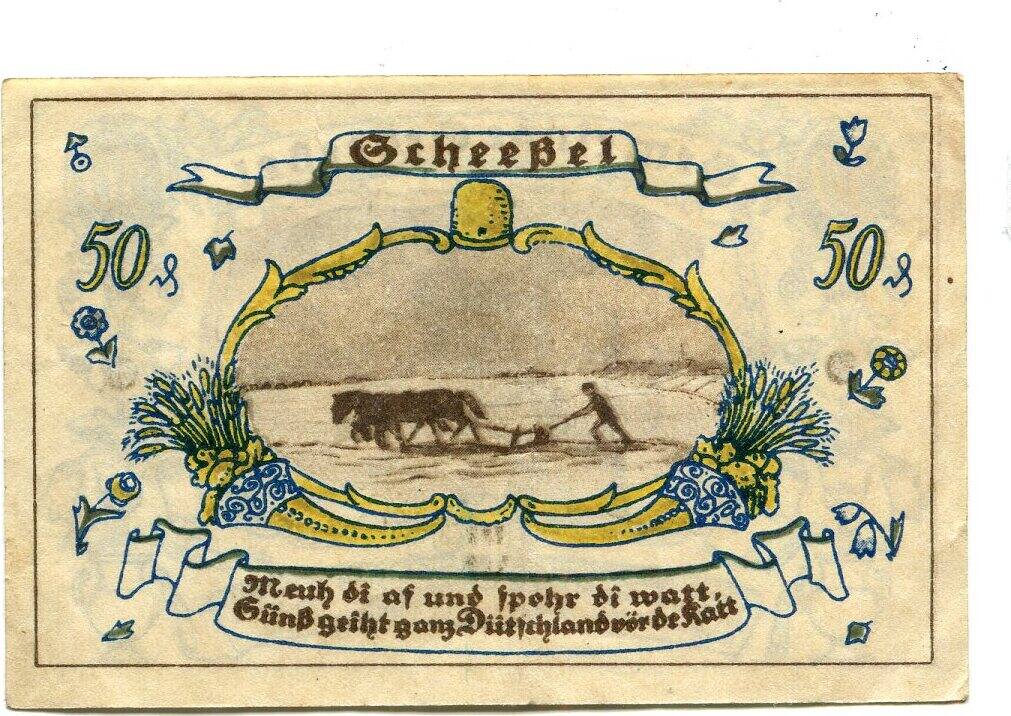 Scheeßel
50 ₰
50 ₰
Meuh di af und spohr di watt,
Sünß geiht ganz Dütschland vör de Katt